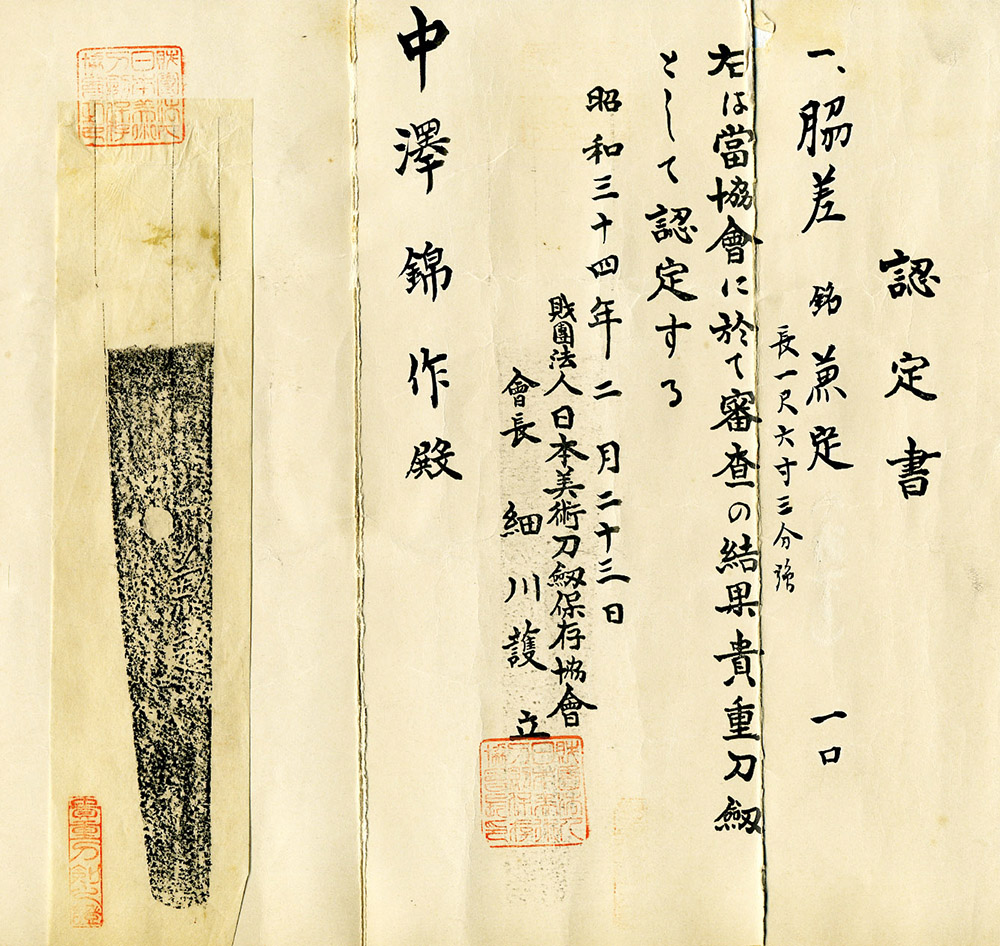 認定書
一、脇差 銘 兼定 一口
長一尺六寸三分強
右は當協會に於て審査の結果貴重刀剱
として認定する
昭和三十四年二月二十三日
財團法人日本美術刀剱保存協會
會長 細川護立
中澤錦作殿